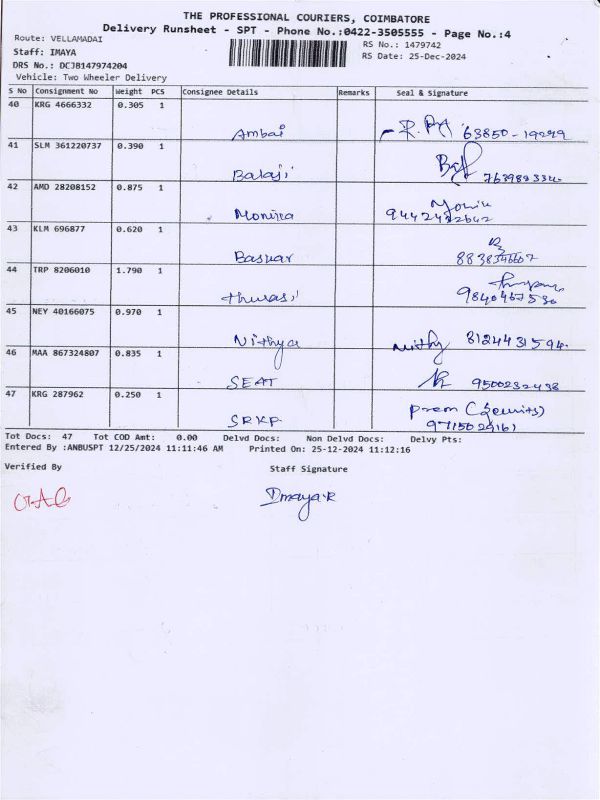 THE PROFESSIONAL COURIERS, COIMBATORE
Delivery Runsheet - SPT - Phone No.:0422-3505555 - Page No.:4
Route: VELLAMADAI
RS No.: 1479742
Staff: IMAYA
RS Date: 25-Dec-2024
DRS No.: DCJ8147974204
Vehicle: Two Wheeler Delivery
S No Consignment No Weight PCS Consignee Details Remarks Seal & Signature
40 KRG 4666332 0.305 1 Ambai
41 SLM 361220737 0.390 1 Balaji
42 AMD 28208152 0.875 1 Monica
43 KLM 696877 0.620 1 Baskar
44 TRP 8206010 1.790 1 Thulasi
45 NEY 40166075 0.970 1 Nithya Nithy 8124431594
46 MAA 867324807 0.835 1 SEAT 9500232438
47 KRG 287962 0.250 1 SRKP Prem
9715029161
Tot Docs: 47 Tot COD Amt: 0.00 Delvd Docs: Non Delvd Docs: Delvy Pts:
Entered By :ANBUSPT 12/25/2024 11:11:46 AM Printed On: 25-12-2024 11:12:16
Verified By Staff Signature